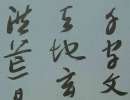 千字文
天地玄
洪荒日